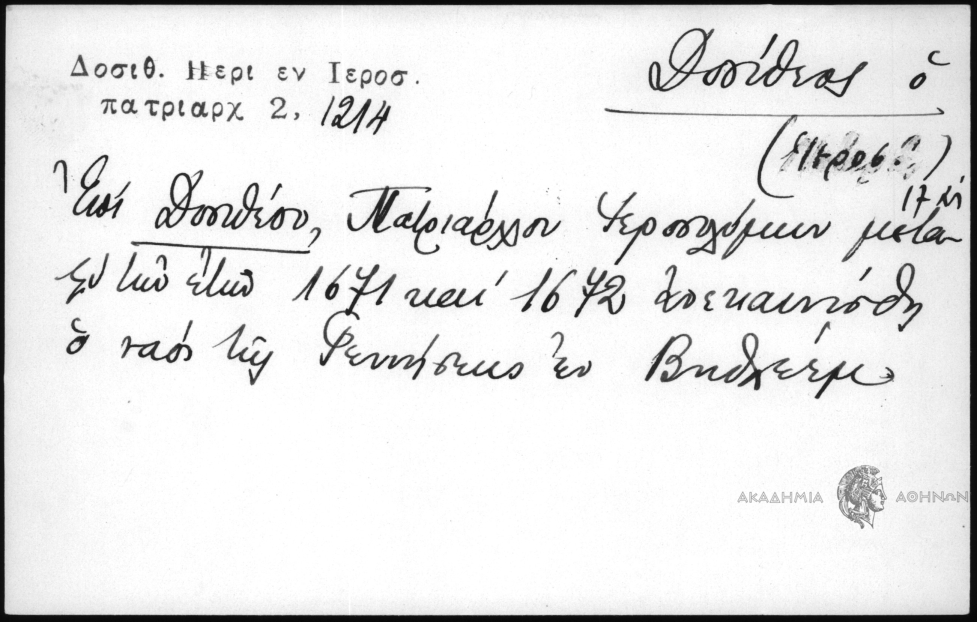 Δοσιθ. Περι εν Ιεροσ.
πατριαρχ 2, 1214
Δοσίθεος ὁ
17 αἰ
Ἐπὶ Δοσιθέου, Πατριάρχου Ἱεροσολύμων μετα-
ξὺ τῶν ἐτῶν 1671 καὶ 1672 ἀνεκαινίσθη
ὁ ναὸς τῆς Γεννήσεως ἐν Βηθλεέμ.
ΑΚΑΔΗΜΙΑ ΑΘΗΝΩΝ